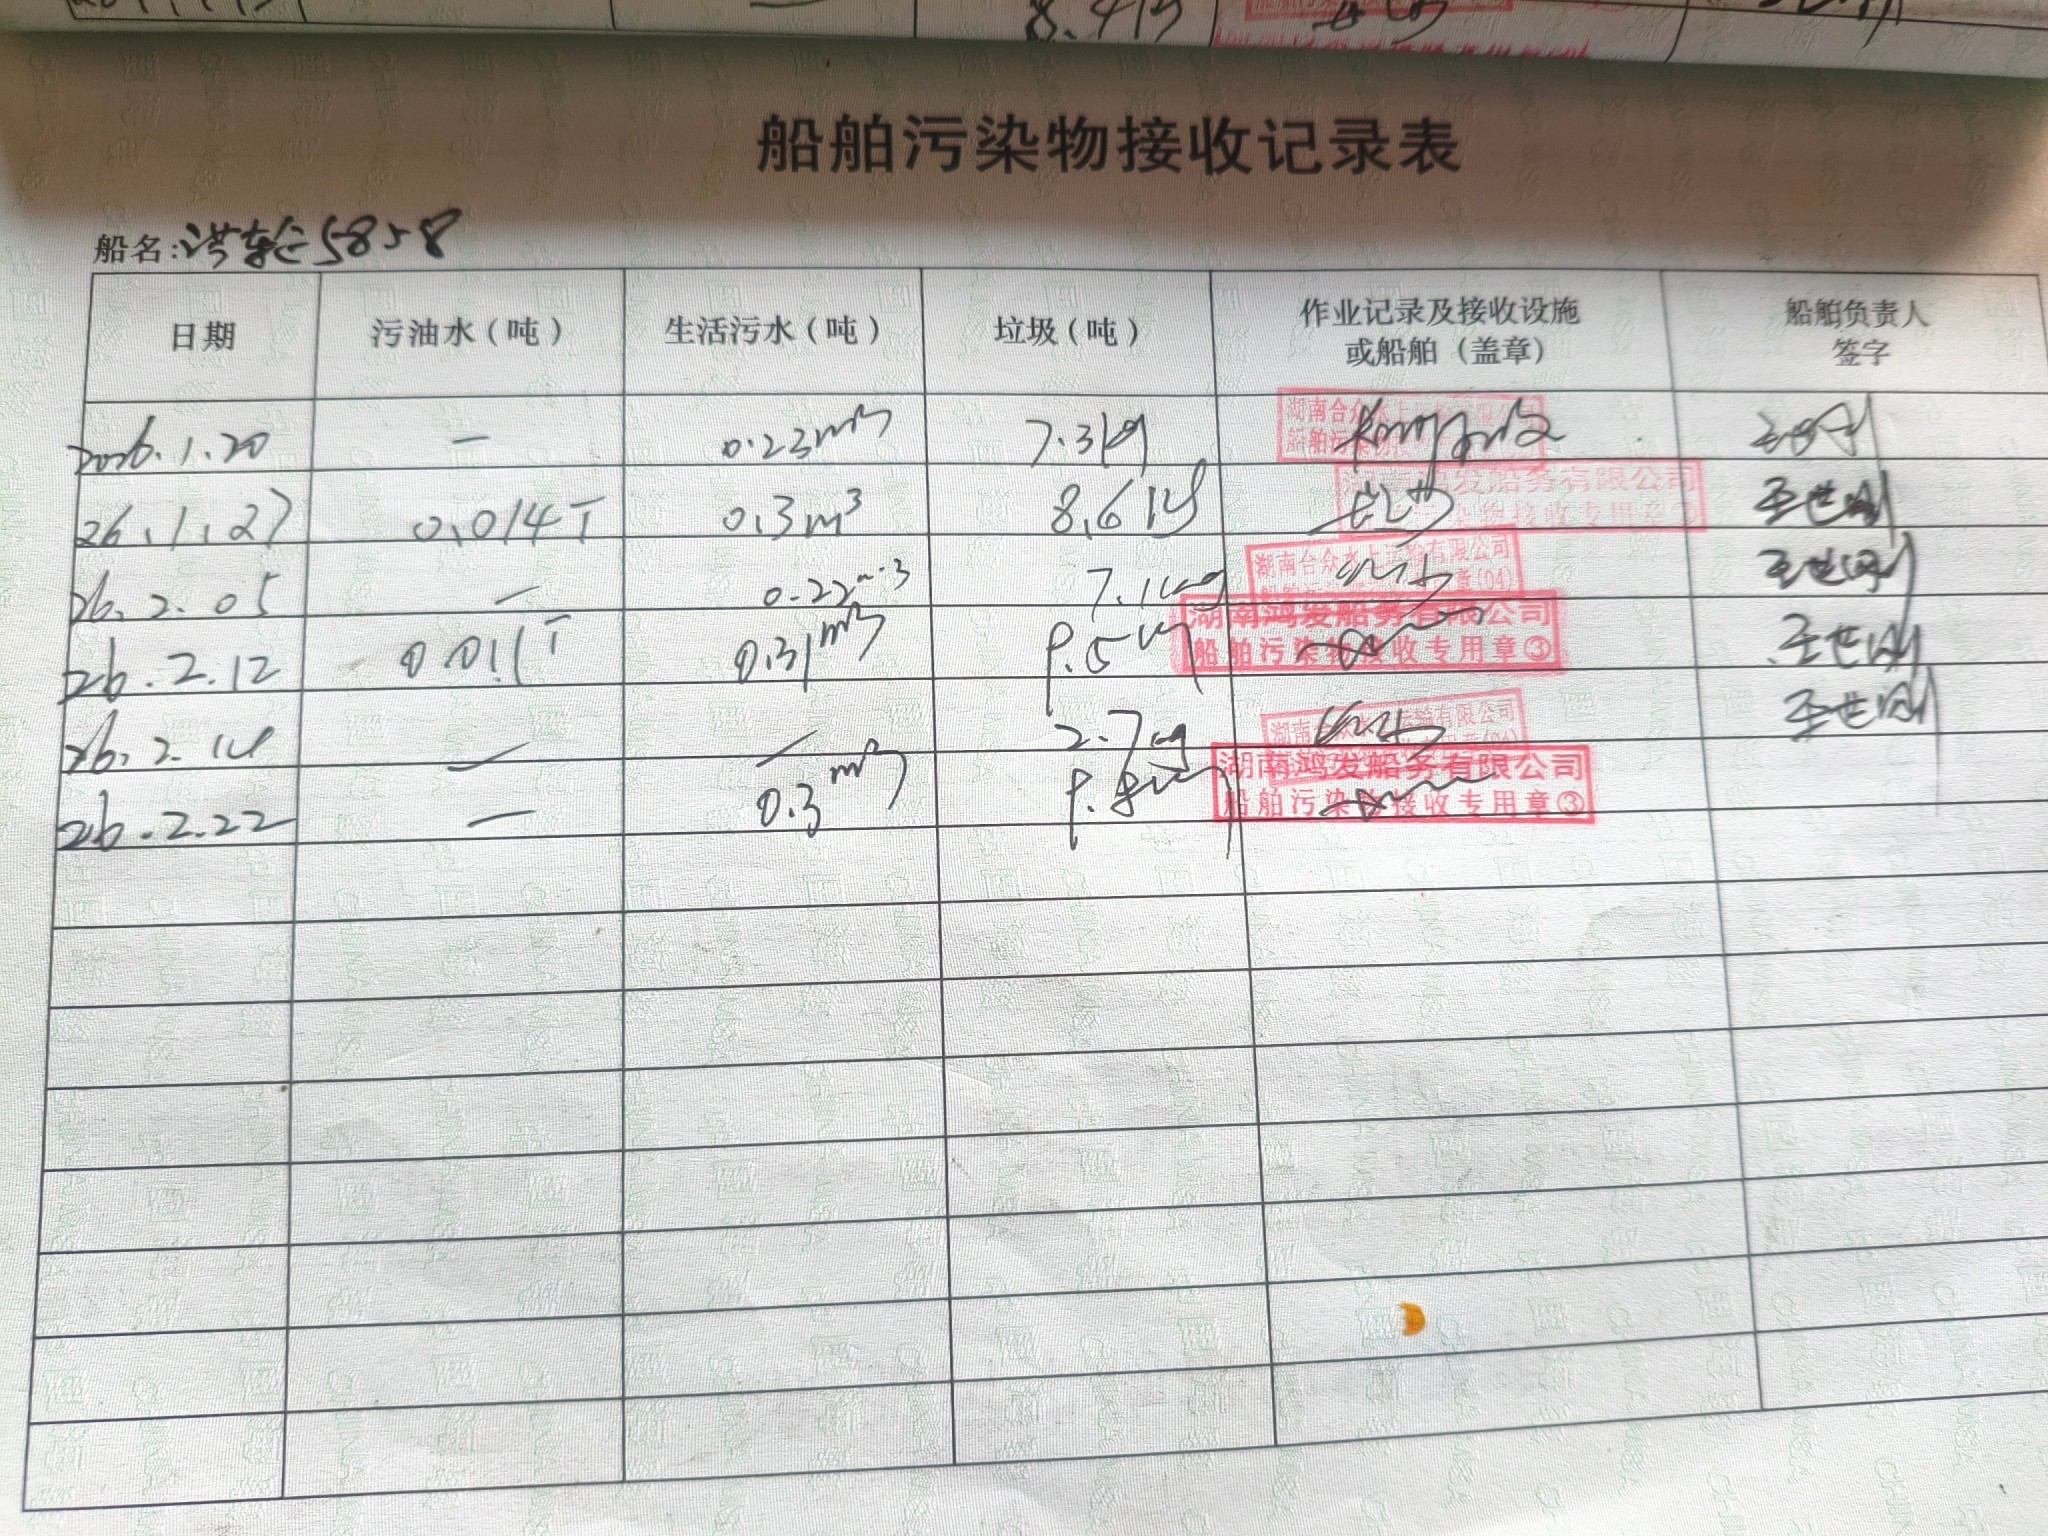 8.4kg
船舶污染物接收记录表
船名:洪轮5858
日期 污油水（吨） 生活污水（吨） 垃圾（吨） 作业记录及接收设施或船舶（盖章） 船舶负责人签字
2026.1.20 — 0.23m³ 7.3kg 湖南合众水上
船舶污染物接
26.1.27 0.014T 0.3m³ 8.6kg 鸿发船务有限公司
污染物接收专用章③ 王世刚
26.2.05 — 0.22m3 7.1kg 湖南合众水上运输有限公司
章(04) 王世刚
26.2.12 0.011T 0.31m³ 9.5kg 湖南鸿发船务有限公司
船舶污染物接收专用章③ 王世刚
26.2.14 — — 2.7kg 湖南 水 运输有限公司
王世刚
26.2.22 — 0.3m³ 湖南鸿发船务有限公司
船舶污染物接收专用章③